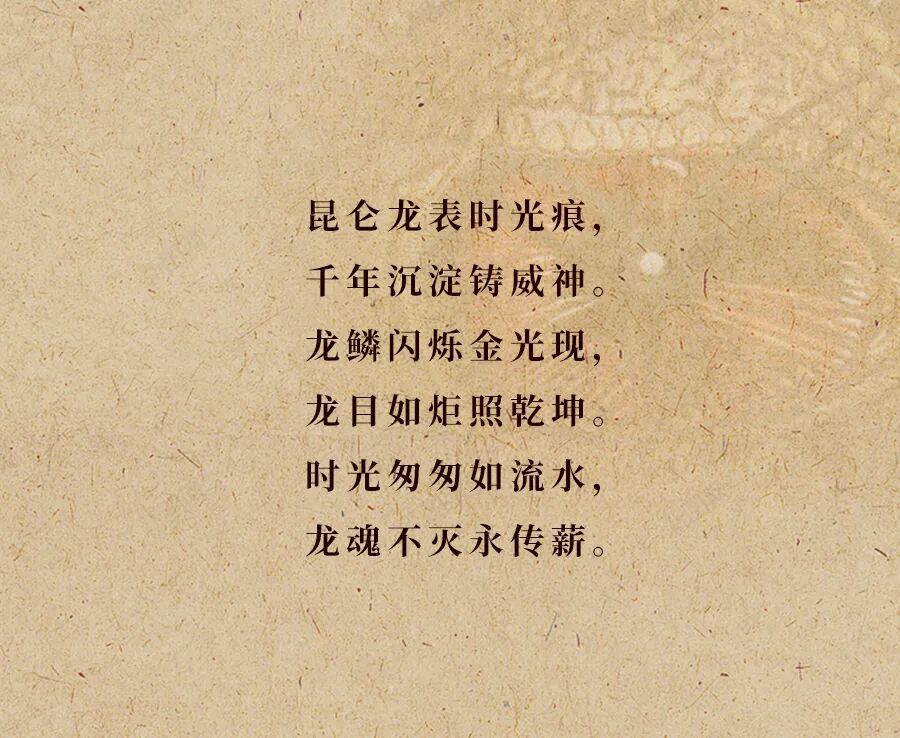 昆仑龙表时光痕，
千年沉淀铸威神。
龙鳞闪烁金光现，
龙目如炬照乾坤。
时光匆匆如流水，
龙魂不灭永传薪。